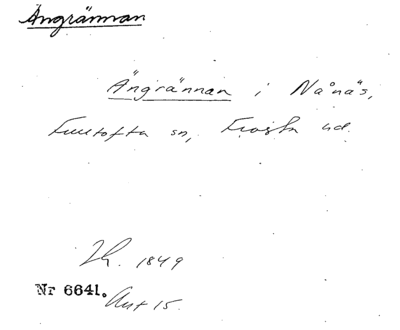 Ängrännan
Ängrännan i Nånäs,
Fulltofta sn, Frosta hd.
1849
Nr 6641. Akt 15.